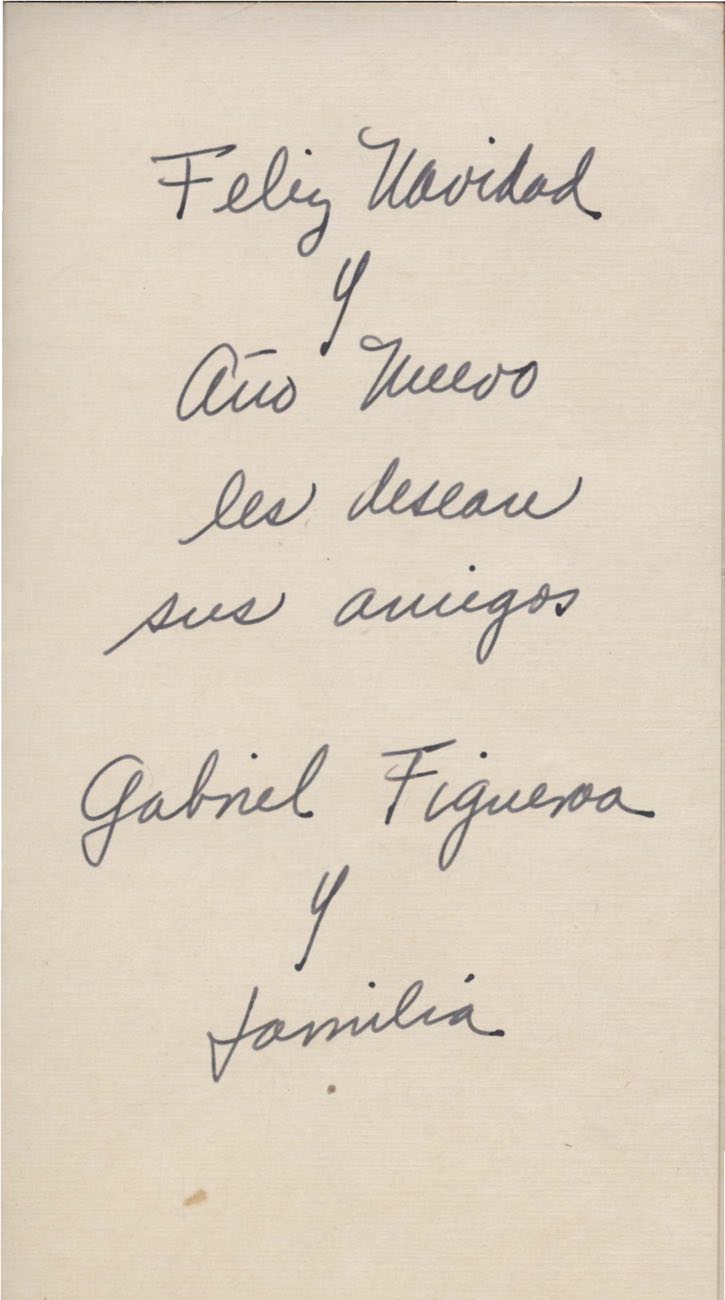 Feliz Navidad
y
Año Nuevo
les desean
sus amigos
Gabriel Figueroa
y
familia